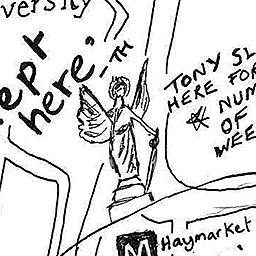 versity
ept
here.
-TH
TONY SL
HERE FOR
NUM
OF
WEE
M
Haymarket